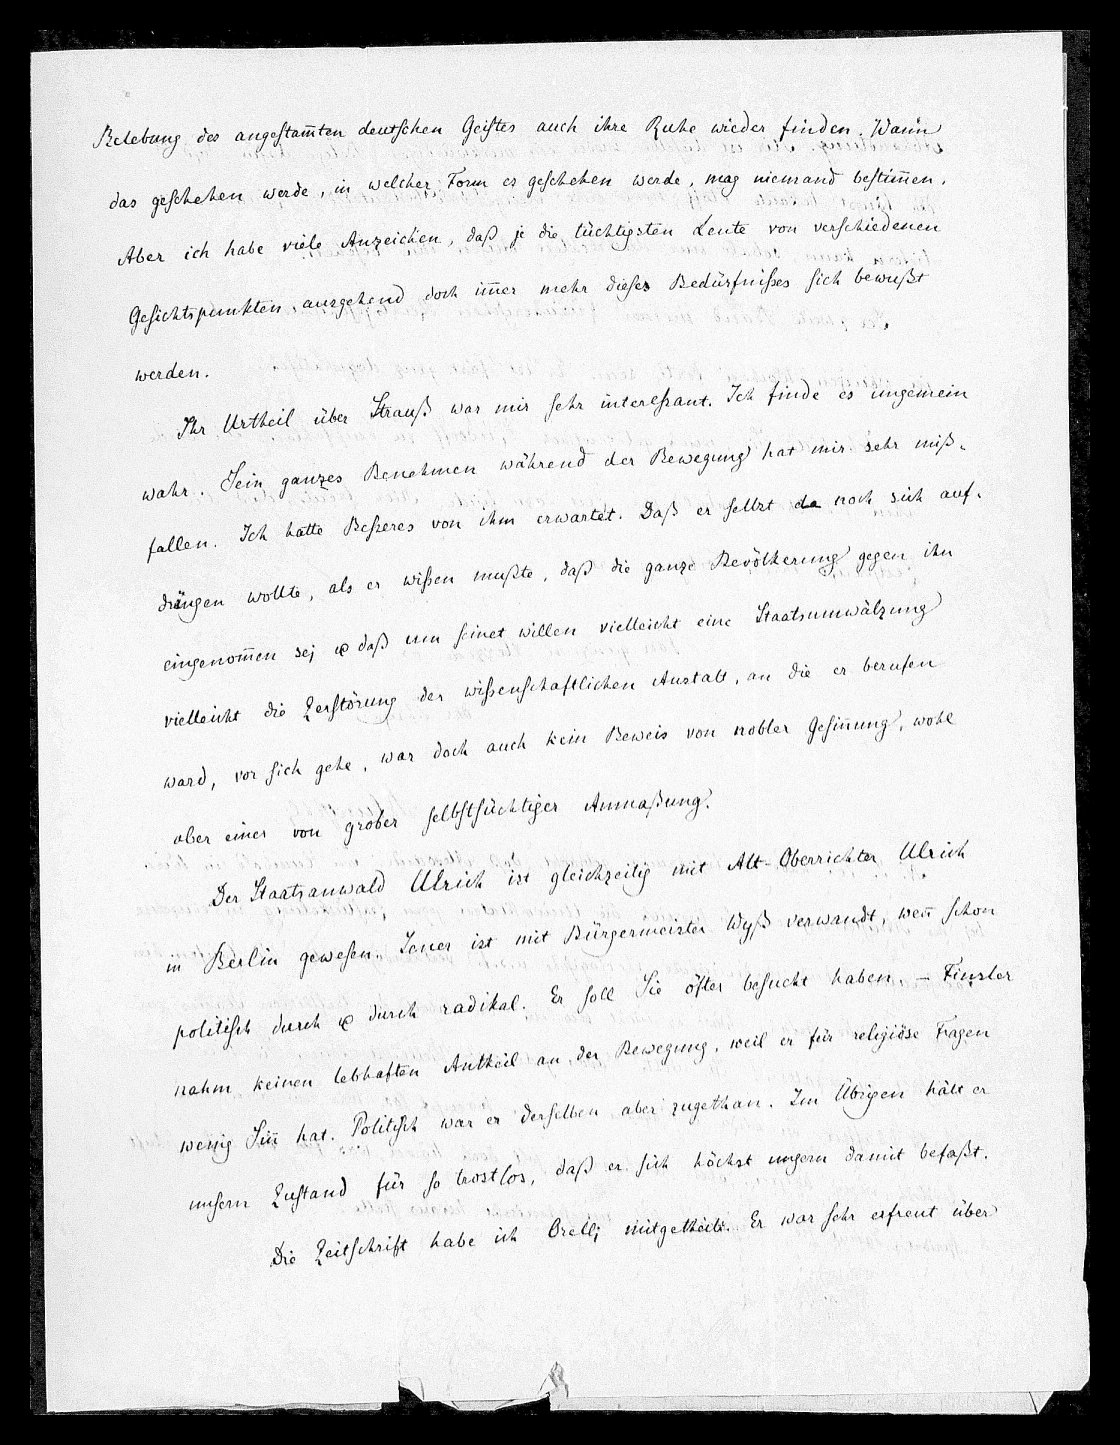 Belebung des angestam̅ten deutschen Geistes auch ihre Ruhe wieder finden. Wann
das geschehen werde, in welcher Form es geschehen werde, mag niemand bestim̅en.
Aber ich habe viele Anzeichen, daß je die tüchtigsten Leute von verschiedenen
Gesichtspunkten ausgehend doch im̅er mehr dieses Bedürfnißes sich bewußt
werden.
Ihr Urtheil über Strauß war mir sehr intereßant. Ich finde es ungemein
wahr. Sein ganzes Benehmen während der Bewegung hat mir sehr miß-
fallen. Ich hatte Beßeres von ihm erwartet. Daß er selbst da noch sich auf-
drängen wollte, als er wißen mußte, daß die ganze Bevölkerung gegen ihn
eingenom̅en sei & daß um seinet willen vielleicht eine Staatsumwälzung
vielleicht die Zerstörung der wißenschaftlichen Anstalt, an die er berufen
ward, vor sich gehe, war doch auch kein Beweis von nobler Gesin̅ung, wohl
aber einer von grober selbstsüchtiger Anmaßung.
Der Staatsanwald Ulrich ist gleichzeitig mit Alt-Oberrichter Ulrich
in Berlin gewesen. Jener ist mit Bürgermeister Wyß verwandt, wen̅ schon
politisch durch & durch radikal. Er soll Sie öfter besucht haben. – Finsler
nahm keinen lebhaften Antheil an der Bewegung, weil er für religiöse Fragen
wenig Sin̅ hat. Politisch war er derselben aber zugethan. Im Übrigen hält er
unsern Zustand für so trostlos, daß er sich höchst ungern damit befaßt.
Die Zeitschrift habe ich Orelli mitgetheilt. Er war sehr erfreut über